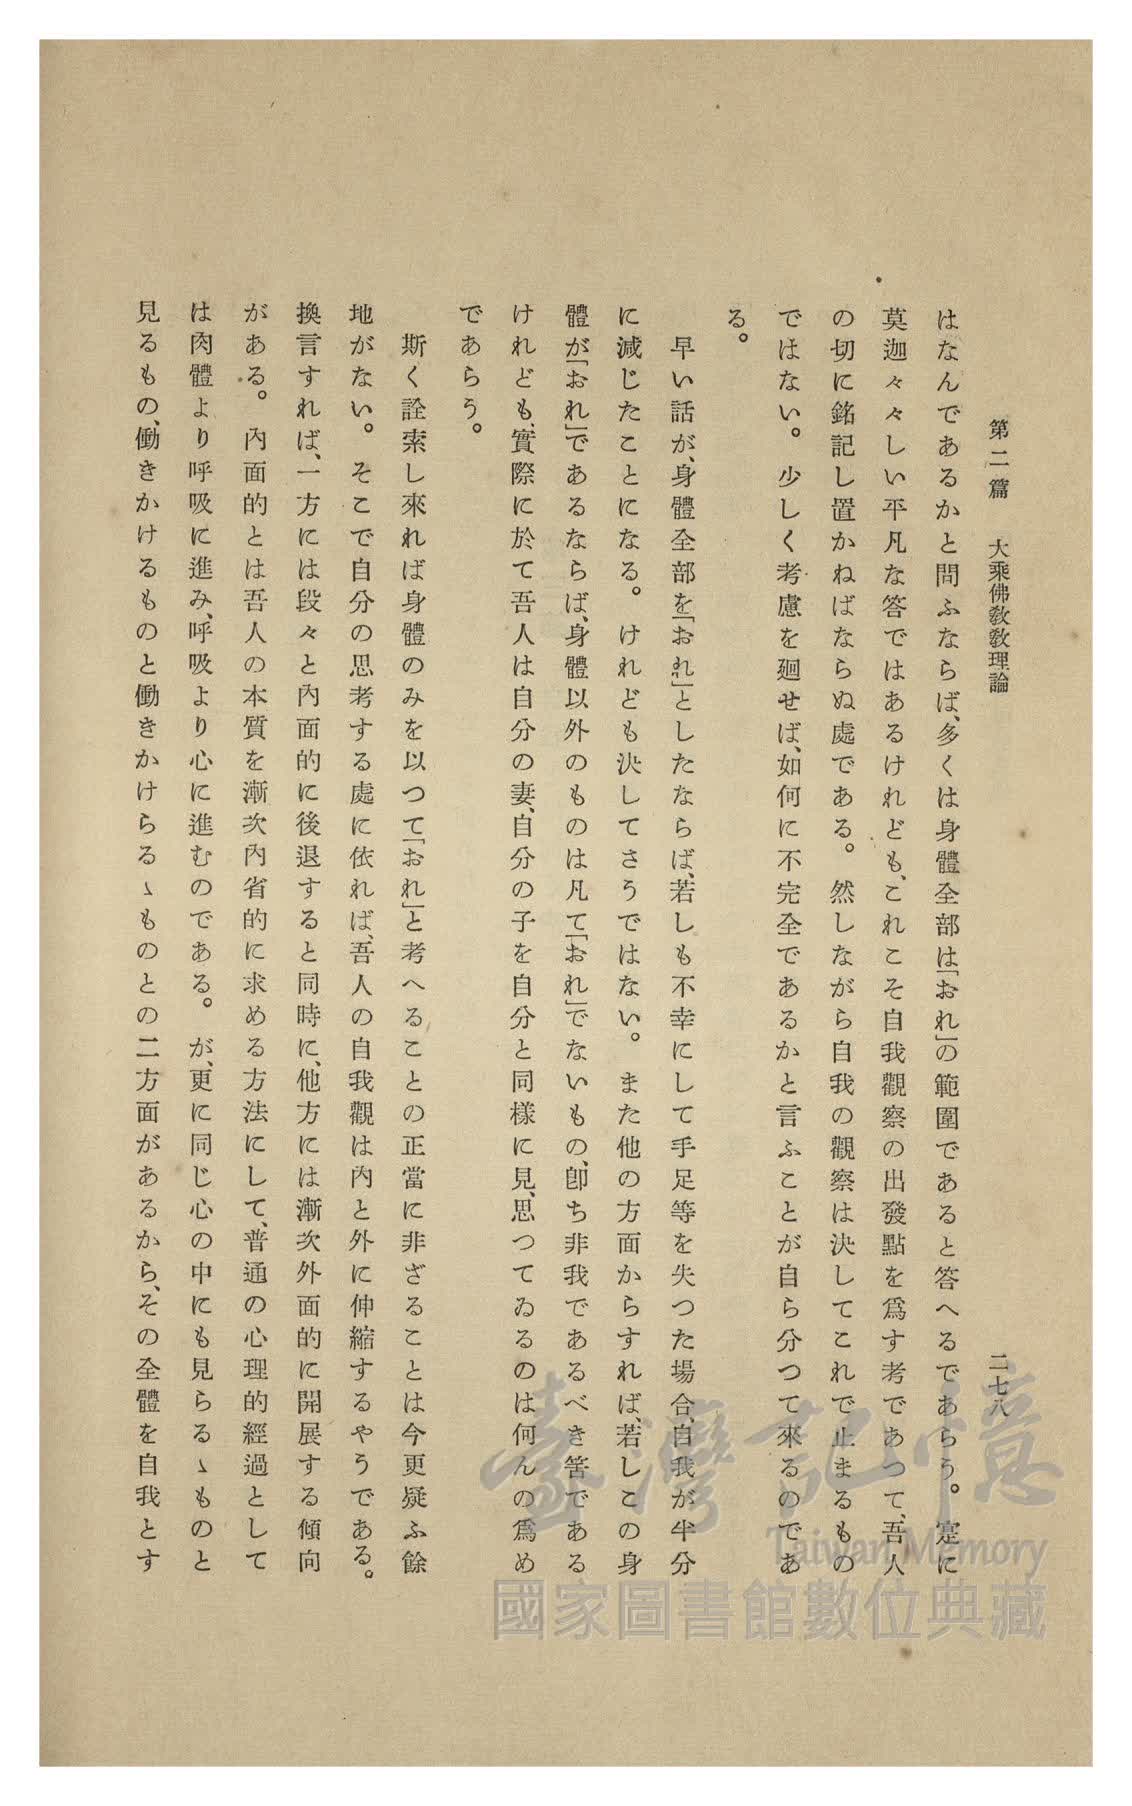 第二篇　大乘佛敎敎理論　二七八
はなんであるかと問ふならば、多くは身體全部は「おれ」の範圍であると答へるであらう。寔に
莫迦々々しい平凡な答ではあるけれども、これこそ自我觀察の出發點を爲す考であつて、吾人
の切に銘記し置かねばならぬ處である。然しながら自我の觀察は決してこれで止まるもの
ではない。少しく考慮を廻せば、如何に不完全であるかと言ふことが自ら分つて來るのであ
る。
早い話が、身體全部を「おれ」としたならば、若しも不幸にして手足等を失つた場合、自我が半分
に減じたことになる。けれども決してさうではない。また他の方面からすれば、若しこの身
體が「おれ」であるならば、身體以外のものは凡て「おれ」でないもの、卽ち非我であるべき筈である
けれども、實際に於て吾人は自分の妻、自分の子を自分と同樣に見、思つてゐるのは何んの爲め
であらう。
斯く詮索し來れば身體のみを以つて「おれ」と考へることの正當に非ざることは今更疑ふ餘
地がない。そこで自分の思考する處に依れば、吾人の自我觀は內と外に伸縮するやうである。
換言すれば、一方には段々と內面的に後退すると同時に、他方には漸次外面的に開展する傾向
がある。內面的とは吾人の本質を漸次內省的に求める方法にして、普通の心理的經過として
は肉體より呼吸に進み、呼吸より心に進むのである。が、更に同じ心の中にも見らるゝものと
見るもの、働きかけるものと働きかけらるゝものとの二方面があるから、その全體を自我とす
臺灣記憶
Taiwan Memory
國家圖書館數位典藏